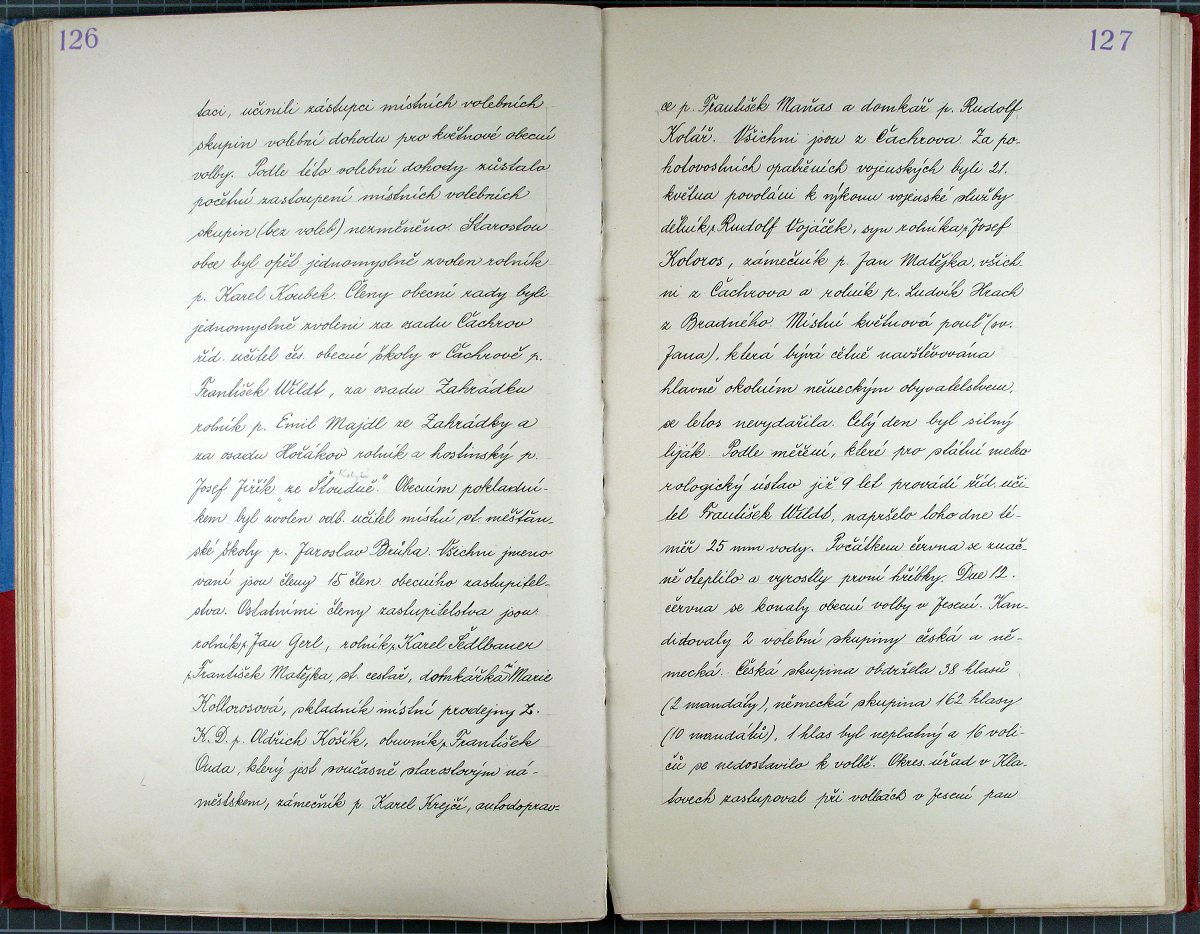 126
taci, učinili zástupci místních volebních
skupin volební dohodu pro květnové obecní
volby. Podle této volební dohody zůstalo
početní zastoupení místních volebních
skupin (bez voleb) nezměněno. Starostou
obce byl opět jednomyslně zvolen rolník
p. Karel Koubek. Členy obecní rady byli
jednomyslně zvoleni za osadu Čachrov
říd. učitel čes. obecné školy v Čachrově p.
František Wildt, za osadu Zahrádku
rolník p. Emil Majdl ze Zahrádky a
za osadu Hořákov rolník a hostinský p.
Josef Jiřík ze "Stoudně." Obecním pokladní-
kem byl zvolen odb. učitel místní st. měšťan-
ské školy p. Jaroslav Brůha. Všichni jmeno
vaní jsou členy 15 člen. obecního zastupitel-
stva. Ostatními členy zastupitelstva jsou:
rolník p. Jan Gerl, rolník p. Karel Sedlbauer
p. František Matějka, st. cestář, domkářka Marie
Kollorosová, skladník místní prodejny Z.
K. D. p. Oldřich Košík, obuvník p. František
Ouda, který jest současně starostovým ná-
městskem, zámečník p. Karel Krejčí, autodoprav-
127
ce p. František Maňas a domkář p. Rudolf
Kolář. Všichni jsou z Čachrova. Za po-
hotovostních opatřeních vojenských byli 21.
května povoláni k výkonu vojenské služby
dělník p. Rudolf Vojáček, syn rolníka p. Josef
Koloros, zámečník p. Jan Matějka, všich-
ni z Čachrova a rolník p. Ludvík Hrach
z Bradného. Místní květnová pouť (sv.
Jana), která bývá četně navštěvována
hlavně okolním německým obyvatelstvem,
se letos nevydařila. Celý den byl silný
liják. Podle měření, které pro státní meteo
rologický ústav již 9 let provádí říd. uči-
tel František Wildt, napršelo toho dne té-
měř 25 mm vody. Počátkem června se znač-
ně oteplilo a vyrostly první hříbky. Dne 12.
června se konaly obecní volby v Jesení. Kan-
didovaly 2 volební skupiny česká a ně-
mecká. Česká skupina obdržela 38 hlasů
(2 mandáty), německá skupina 162 hlasy
(10 mandátů), 1 hlas byl neplatný a 16 voli-
čů se nedostavilo k volbě. Okres. úřad v Kla-
tovech zastupoval při volbách v Jesení pan